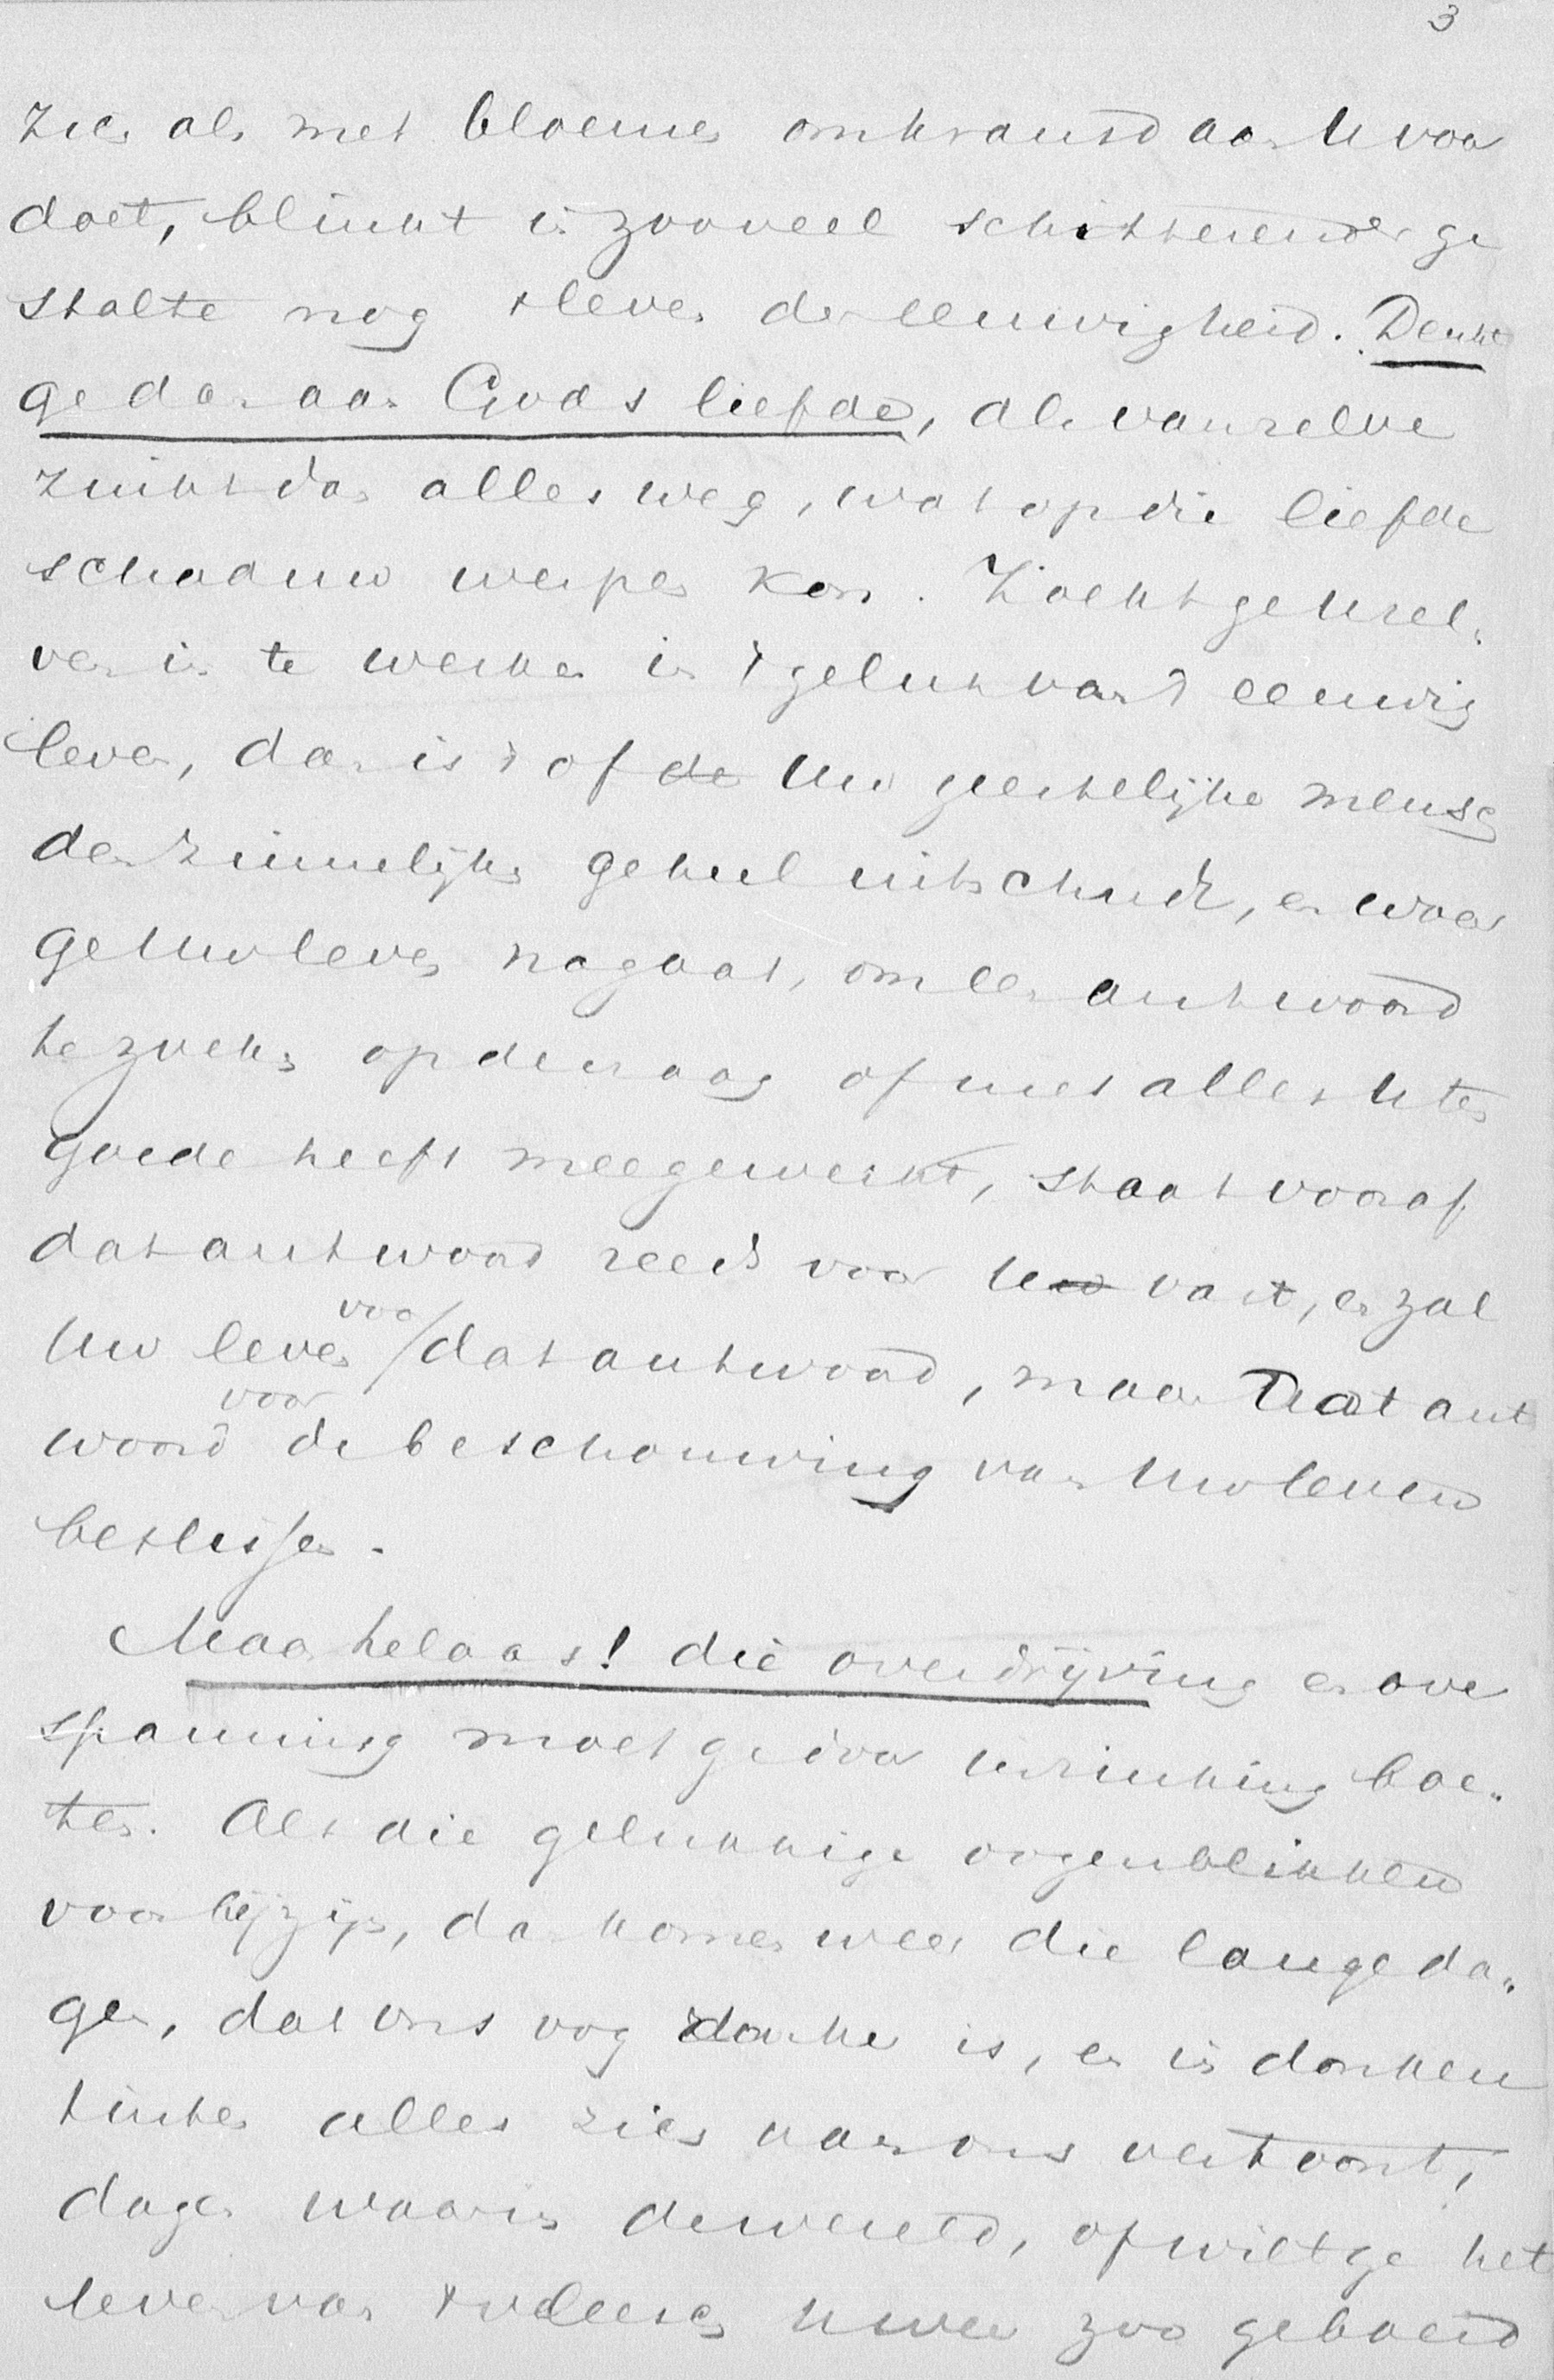 3
zich als met bloemen omkransd aan U voor
doet, blinkt in zooveel schitterender ge
stalte nog 't leven der eeuwigheid. Denkt
ge dan aan Gods liefde, als vanzelve
zinkt dan alles weg, wat op die liefde
schaduw werpen kon. Zoekt ge U zel„
ven in te werken in 't geluk van 't eeuwig
leven, dan is 't of de Uw geestelijke mensch
den zinnelijken geheel uitschudt, en waar
ge Uw leven nagaat, om een antwoord
te zoeken op de vraag of niet alles U ten
goede heeft meegewerkt, staat vooraf
dat antwoord reeds voor U vast, en zal
Uw leven voor dat antwoord, maar dat ant
woord voor de beschouwing van Uw leven
beslissen.
Maar helaas! die overdrijving en over
spanning moet ge door inzinking boe„
ten. Als die gelukkige oogenblikken
voorbij zijn, dan komen weer die lange da„
gen, dat ons oog donker is, en in donkere
tinten alles zich aan ons vertoont,
dagen waarin de wereld, of wilt ge het
leven van 't vleesch U weer zoo geboeid